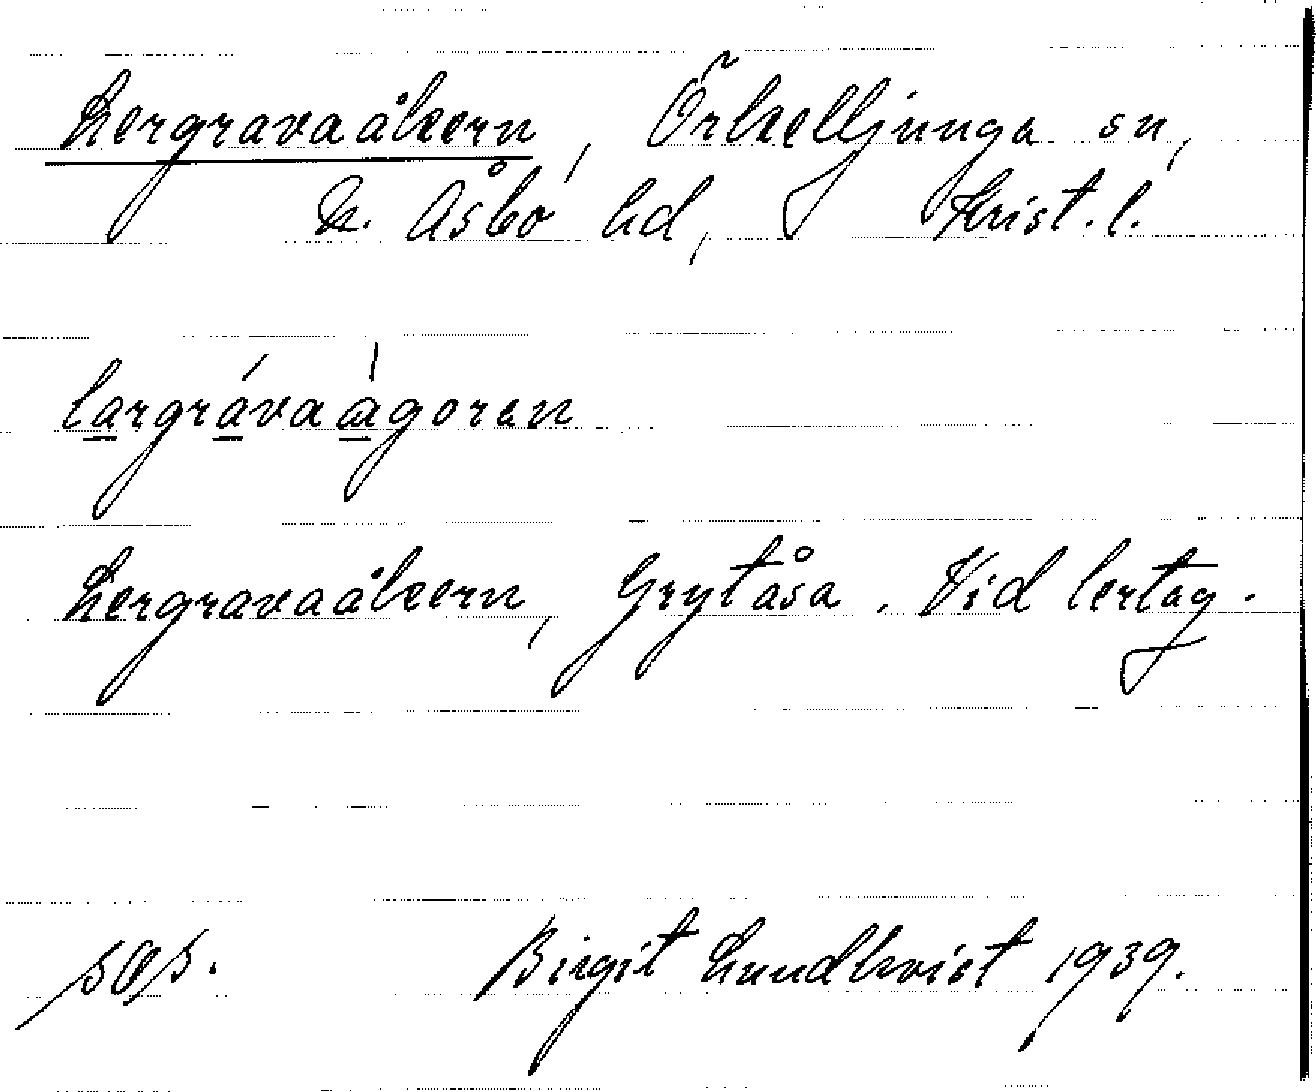 Lergravaåkern, Örkelljunga sn,
N. Åsbo hd, Krist. l.
largráva ágoran
Lergravaåkern, Grytåsa. Vid lertag.
Birgit Lundkvist 1939.